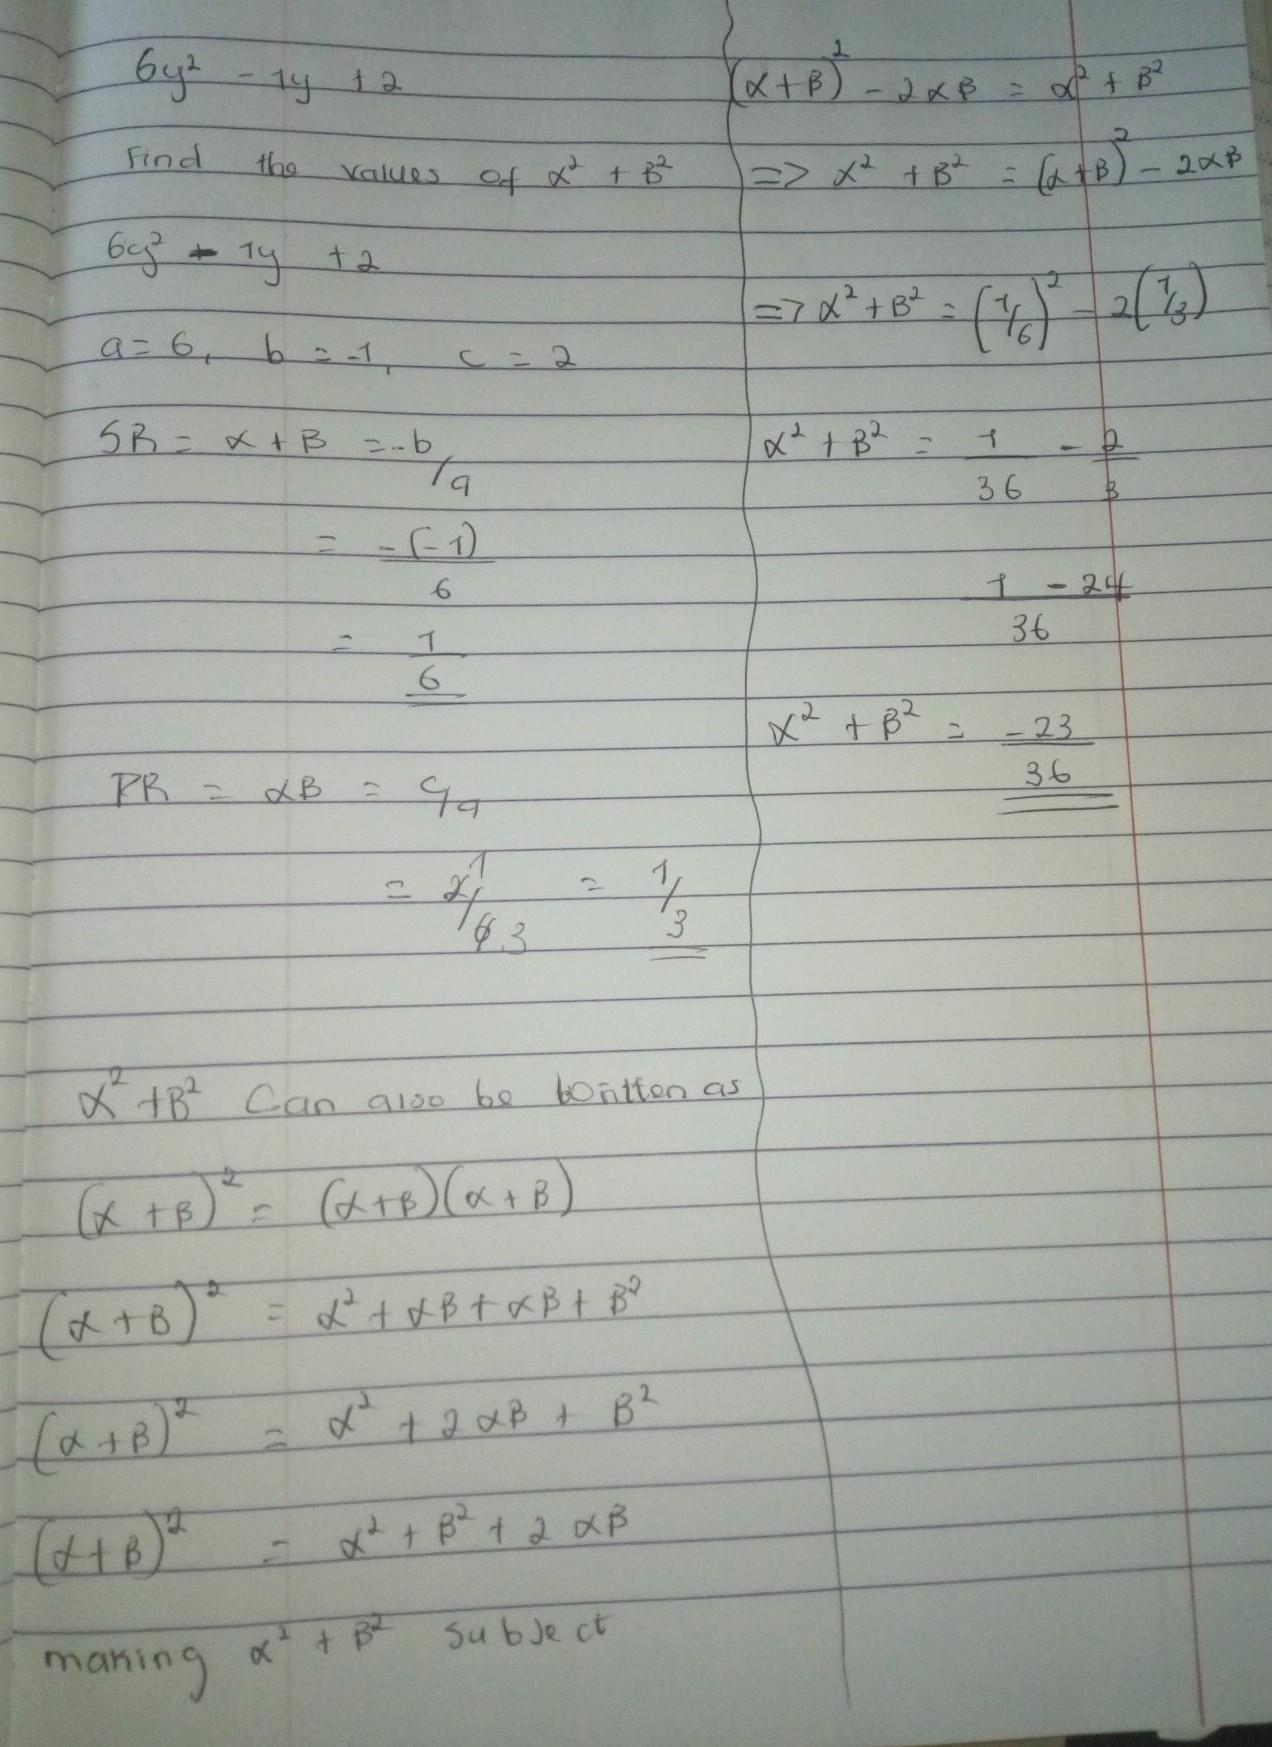 6y² - 1y + 2
Find the values of α² + β²
6y² - 1y + 2
a = 6, b = -1, c = 2
SR = α + β = -b/a
= -(-1)/6
= 1/6
PR = αβ = c/a
= 2/6 1 3 = 1/3
α² + β² Can also be written as
(α + β)² = (α + β)(α + β)
(α + β)² = α² + αβ + αβ + β²
(α + β)² = α² + 2αβ + β²
(α + β)² = α² + β² + 2αβ
making α² + β² subject
(α + β)² - 2αβ = α² + β²
=> α² + β² = (α + β)² - 2αβ
=> α² + β² = (1/6)² - 2(1/3)
α² + β² = 1/36 - 2/3
1 - 24/36
α² + β² = -23/36